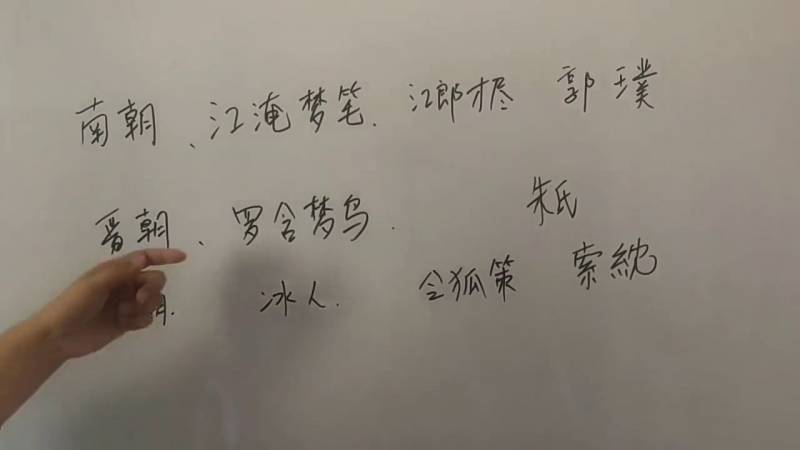 南朝、江淹梦笔、江郎才尽 郭璞
晋朝、罗含梦鸟. 朱氏
冰人. 令狐策 索紞